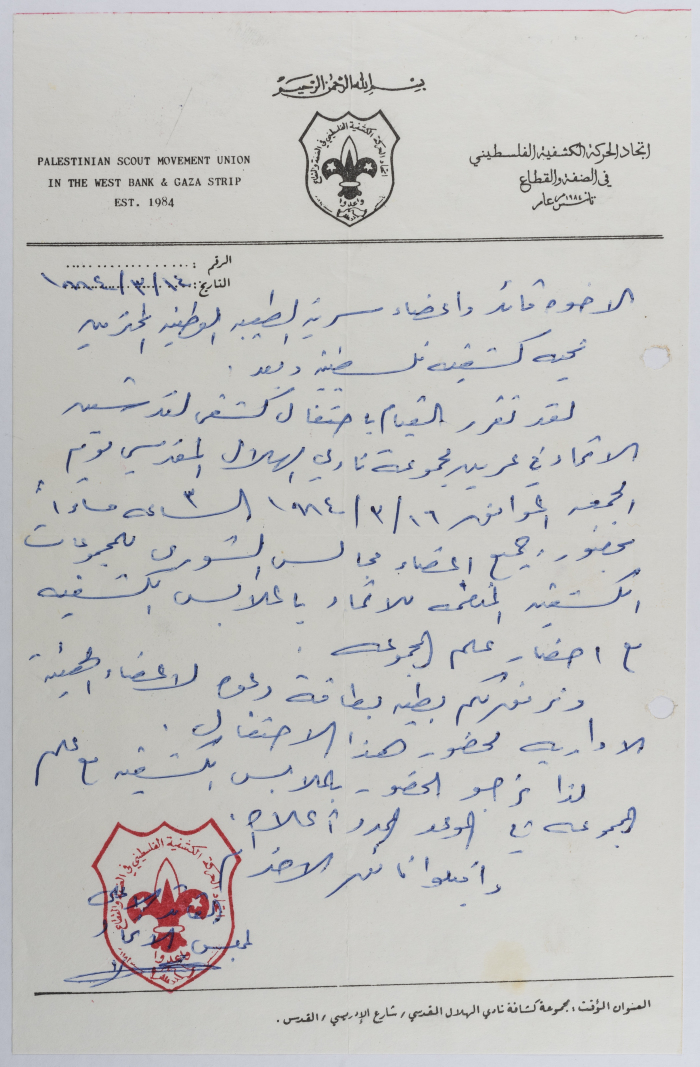 بسم الله الرحمن الرحيم
PALESTINIAN SCOUT MOVEMENT UNION
IN THE WEST BANK & GAZA STRIP
EST. 1984
اتحاد الحركة الكشفية الفلسطيني
في الضفة والقطاع
تأسس عام ١٩٨٤
اتحاد الحركة الكشفية الفلسطيني في الضفة والقطاع
واعدوا
الرقم : ..................
التاريخ : ١٤/٣/١٩٨٤
الاخوه قائد واعضاء سرية الطيبه الوطنيه المحترمين
تحيه كشفيه فلسطينية وبعد .
لقد تقرر القيام باحتفال كشفي لتدشين
الاتحاد في عرين مجموعة نادي الهلال المقدسي يوم
الجمعه الموافق ١٦/٣/١٩٨٤ الساعه ٣ مساءاً
بحضور جميع اعضاء مجالس الشورى للمجموعات
الكشفيه المنضمه للاتحاد بالملابس الكشفيه
مع احضار علم المجموعه .
ونرفق لكم بطيه بطاقة دعوه لاعضاء الهيئة
الاداريه لحضور هذا الاحتفال .
لذا نرجو الحضور بالملابس الكشفيه مع علم
المجموعه في الموعد المحدد أعلاه .
واقبلوا فائق الاحترام
القائد الاعلى
لمجلس الاتحاد
اتحاد الحركة الكشفية الفلسطيني في الضفة والقطاع
واعدوا
العنوان المؤقت : مجموعة كشافة نادي الهلال القدسي / شارع الإدريسي / القدس .